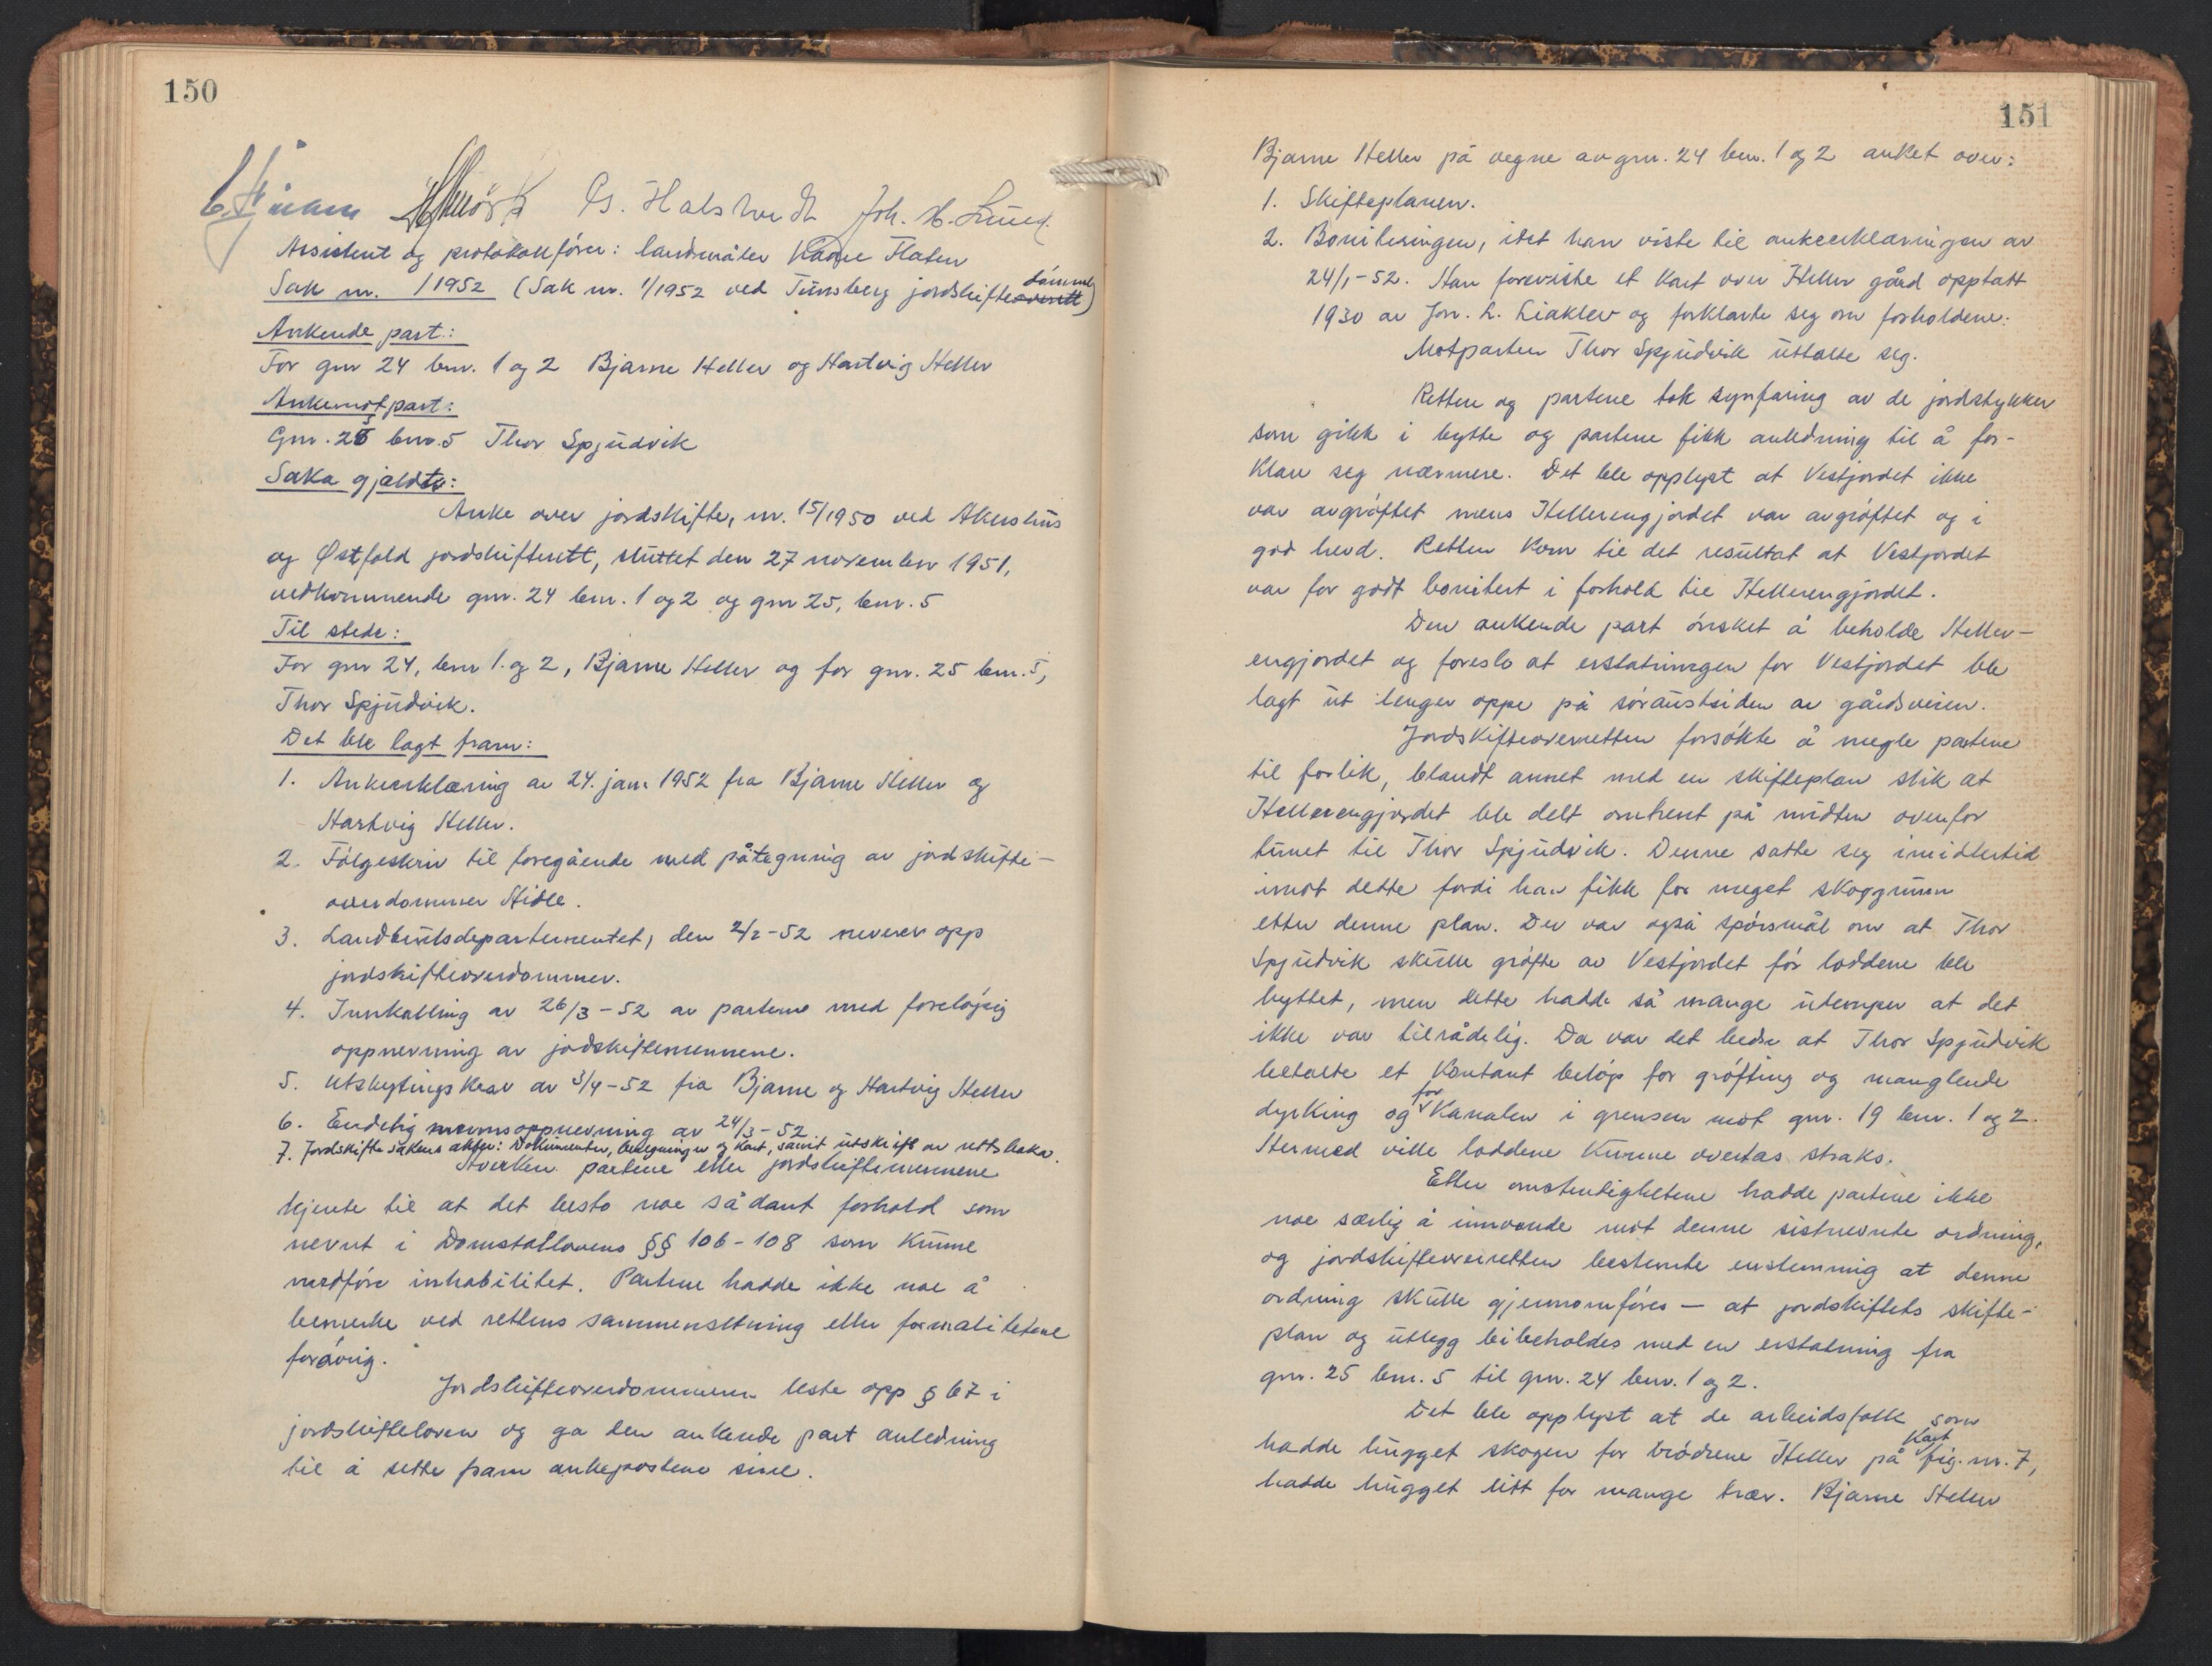 150
Gs. Halstvedt Joh. H. Lund.
Assistent og protokollfører: landmåler Kåre Flaten
Sak nr. 1/1952 (Sak nr. 1/1952 ved Tunsberg jordskifteoverrett)
dømme
Ankende part:
For gnr 24 bnr. 1 og 2 Bjarne Heller og Hartvig Heller
Ankemotpart:
Gnr. 25 bnr. 5 Thor Spjudvik
Saka gjeldtr:
Anke over jordskifte, nr. 15/1950 ved Akershus
og Østfold jordskifterett, sluttet den 27 november 1951,
vedkommende gnr. 24 bnr. 1 og 2 og gnr 25, bnr. 5
Til stede:
For gnr 24, bnr 1. og 2, Bjarne Heller og for gnr. 25 bnr. 5,
Thor Spjudvik.
Det ble lagt fram:
1. Ankeerklæring av 24. jan. 1952 fra Bjarne Heller og
Hartvig Heller.
2. Følgeskriv til foregående med påtegning av jordskifte-
overdommer Hidle.
3. Landbruksdepartementet, den 2/2-52 nevner opp
jordskifteoverdommer.
4. Innkalling av 26/3-52 av partene med foreløpig
oppnevning av jordskiftemennene.
5. Utskytingskrav av 3/4-52 fra Bjarne og Hartvig Heller
6. Endelig mannsoppnevning av 24/3-52
7. Jordskiftesakens akter: Dokumenter, beregninger og kart, samt utskrift av rettsboka.
Hverken partene eller jordskiftemennene
kjente til at det besto noe sådant forhold som
nevnt i Domstollovens §§ 106-108 som kunne
medføre inhabilitet. Partene hadde ikke noe å
bemerke ved rettens sammensetning eller formalitetene
forøvrig.
Jordskifteoverdommeren leste opp § 67 i
jordskifteloven og ga den ankende part anledning
til å sette fram ankepostene sine.
151
Bjarne Heller på vegne av gnr. 24 bnr. 1 og 2 anket over:
1. Skifteplanen.
2. Boniteringen, idet han viste til ankeerklæringen av
24/1-52. Han foreviste et kart over Heller gård opptatt
1930 av Jon. L. Liaklev og forklarte seg om forholdene.
Motparten Thor Spjudvik uttalte seg.
Retten og partene tok synfaring av de jordstykker
som gikk i bytte og partene fikk anledning til å for-
klare seg nærmere. Det ble opplyst at Vestjordet ikke
var avgrøftet mens Hellerengjordet var avgrøftet og i
god hevd. Retten kom til det resultat at Vestjordet
var for godt bonitert i forhold til Hellerengjordet.
Den ankende part ønsket å beholde Heller-
engjordet og foreslo at erstatningen for Vestjordet ble
lagt ut lenger oppe på søraustsiden av gårdsveien.
Jordskifteoverretten forsøkte å megle partene
til forlik, blandt annet med en skifteplan slik at
Hellerengjordet ble delt omtrent på midten ovenfor
tunet til Thor Spjudvik. Denne satte seg imidlertid
imot dette fordi han fikk for meget skoggrunn
etter denne plan. Der var også spørsmål om at Thor
Spjudvik skulle grøfte av Vestjordet før loddene ble
byttet, men dette hadde så mange ulemper at det
ikke var tilrådelig. Da var det bedre at Thor Spjudvik
betalte et kontant beløp for grøfting og manglende
dyrking og for kanalen i grensen mot gnr. 19 bnr. 1 og 2.
Hermed ville loddene kunne overtas straks.
Etter omstendighetene hadde partene ikke
noe særlig å innvende mot denne sistnevnte ordning,
og jordskifteoverretten bestemte enstemmig at denne
ordning skulle gjennomføres — at jordskiftets skifte-
plan og utlegg bibeholdes med en erstatning fra
gnr. 25 bnr. 5 til gnr. 24 bnr. 1 og 2.
Det ble opplyst at de arbeidsfolk som
hadde hugget skogen for brødrene Heller på kart fig. nr. 7,
hadde hugget litt for mange trær. Bjarne Heller